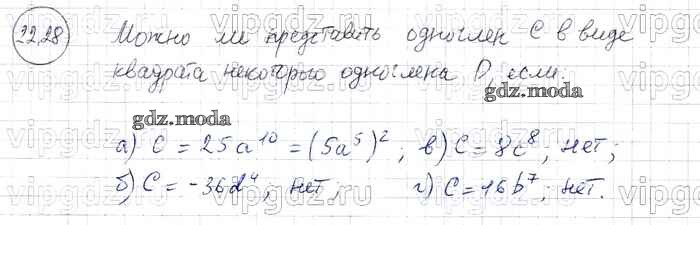 22.28 Можно ли представить одночлен C в виде
квадрата некоторого одночлена D, если:
gdz.moda
gdz.moda
а) C = 25a¹⁰ = (5a⁵)²; в) C = 8c⁸, нет;
б) C = -36d⁴, нет; г) C = 16b⁷; нет.